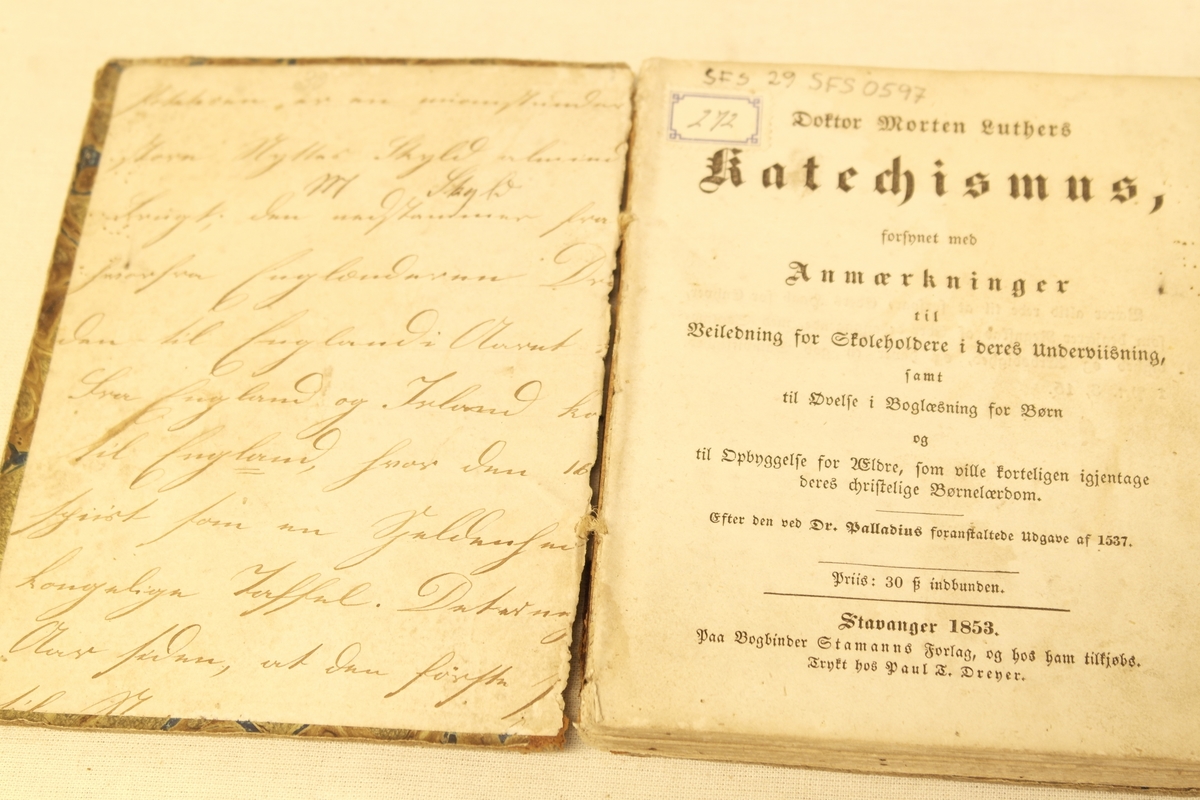 Potteten er en
store Nyttes Skyld almind
M Skyld
Frugt; den nedstammer fra
hvorfra Englænderen Dr
den til England i Aaret
Fra England og Irland ko
til England, hvor den
spiist som en Seldenhe
kongelige Taffel. Det er
Aar siden, at den første
til M
SFS 29 SFS 0597
272
Doktor Morten Luthers
Katechismus,
forsynet med
Anmærkninger
til
Veiledning for Skoleholdere i deres Underviisning,
samt
til Øvelse i Boglæsning for Børn
og
til Opbyggelse for Ældre, som ville korteligen igjentage
deres christelige Børnelærdom.
Efter den ved Dr. Palladius foranstaltede Udgave af 1537.
Priis: 30 ß indbunden.
Stavanger 1853.
Paa Bogbinder Stamanns Forlag, og hos ham tilkjøbs.
Trykt hos Paul T. Dreyer.